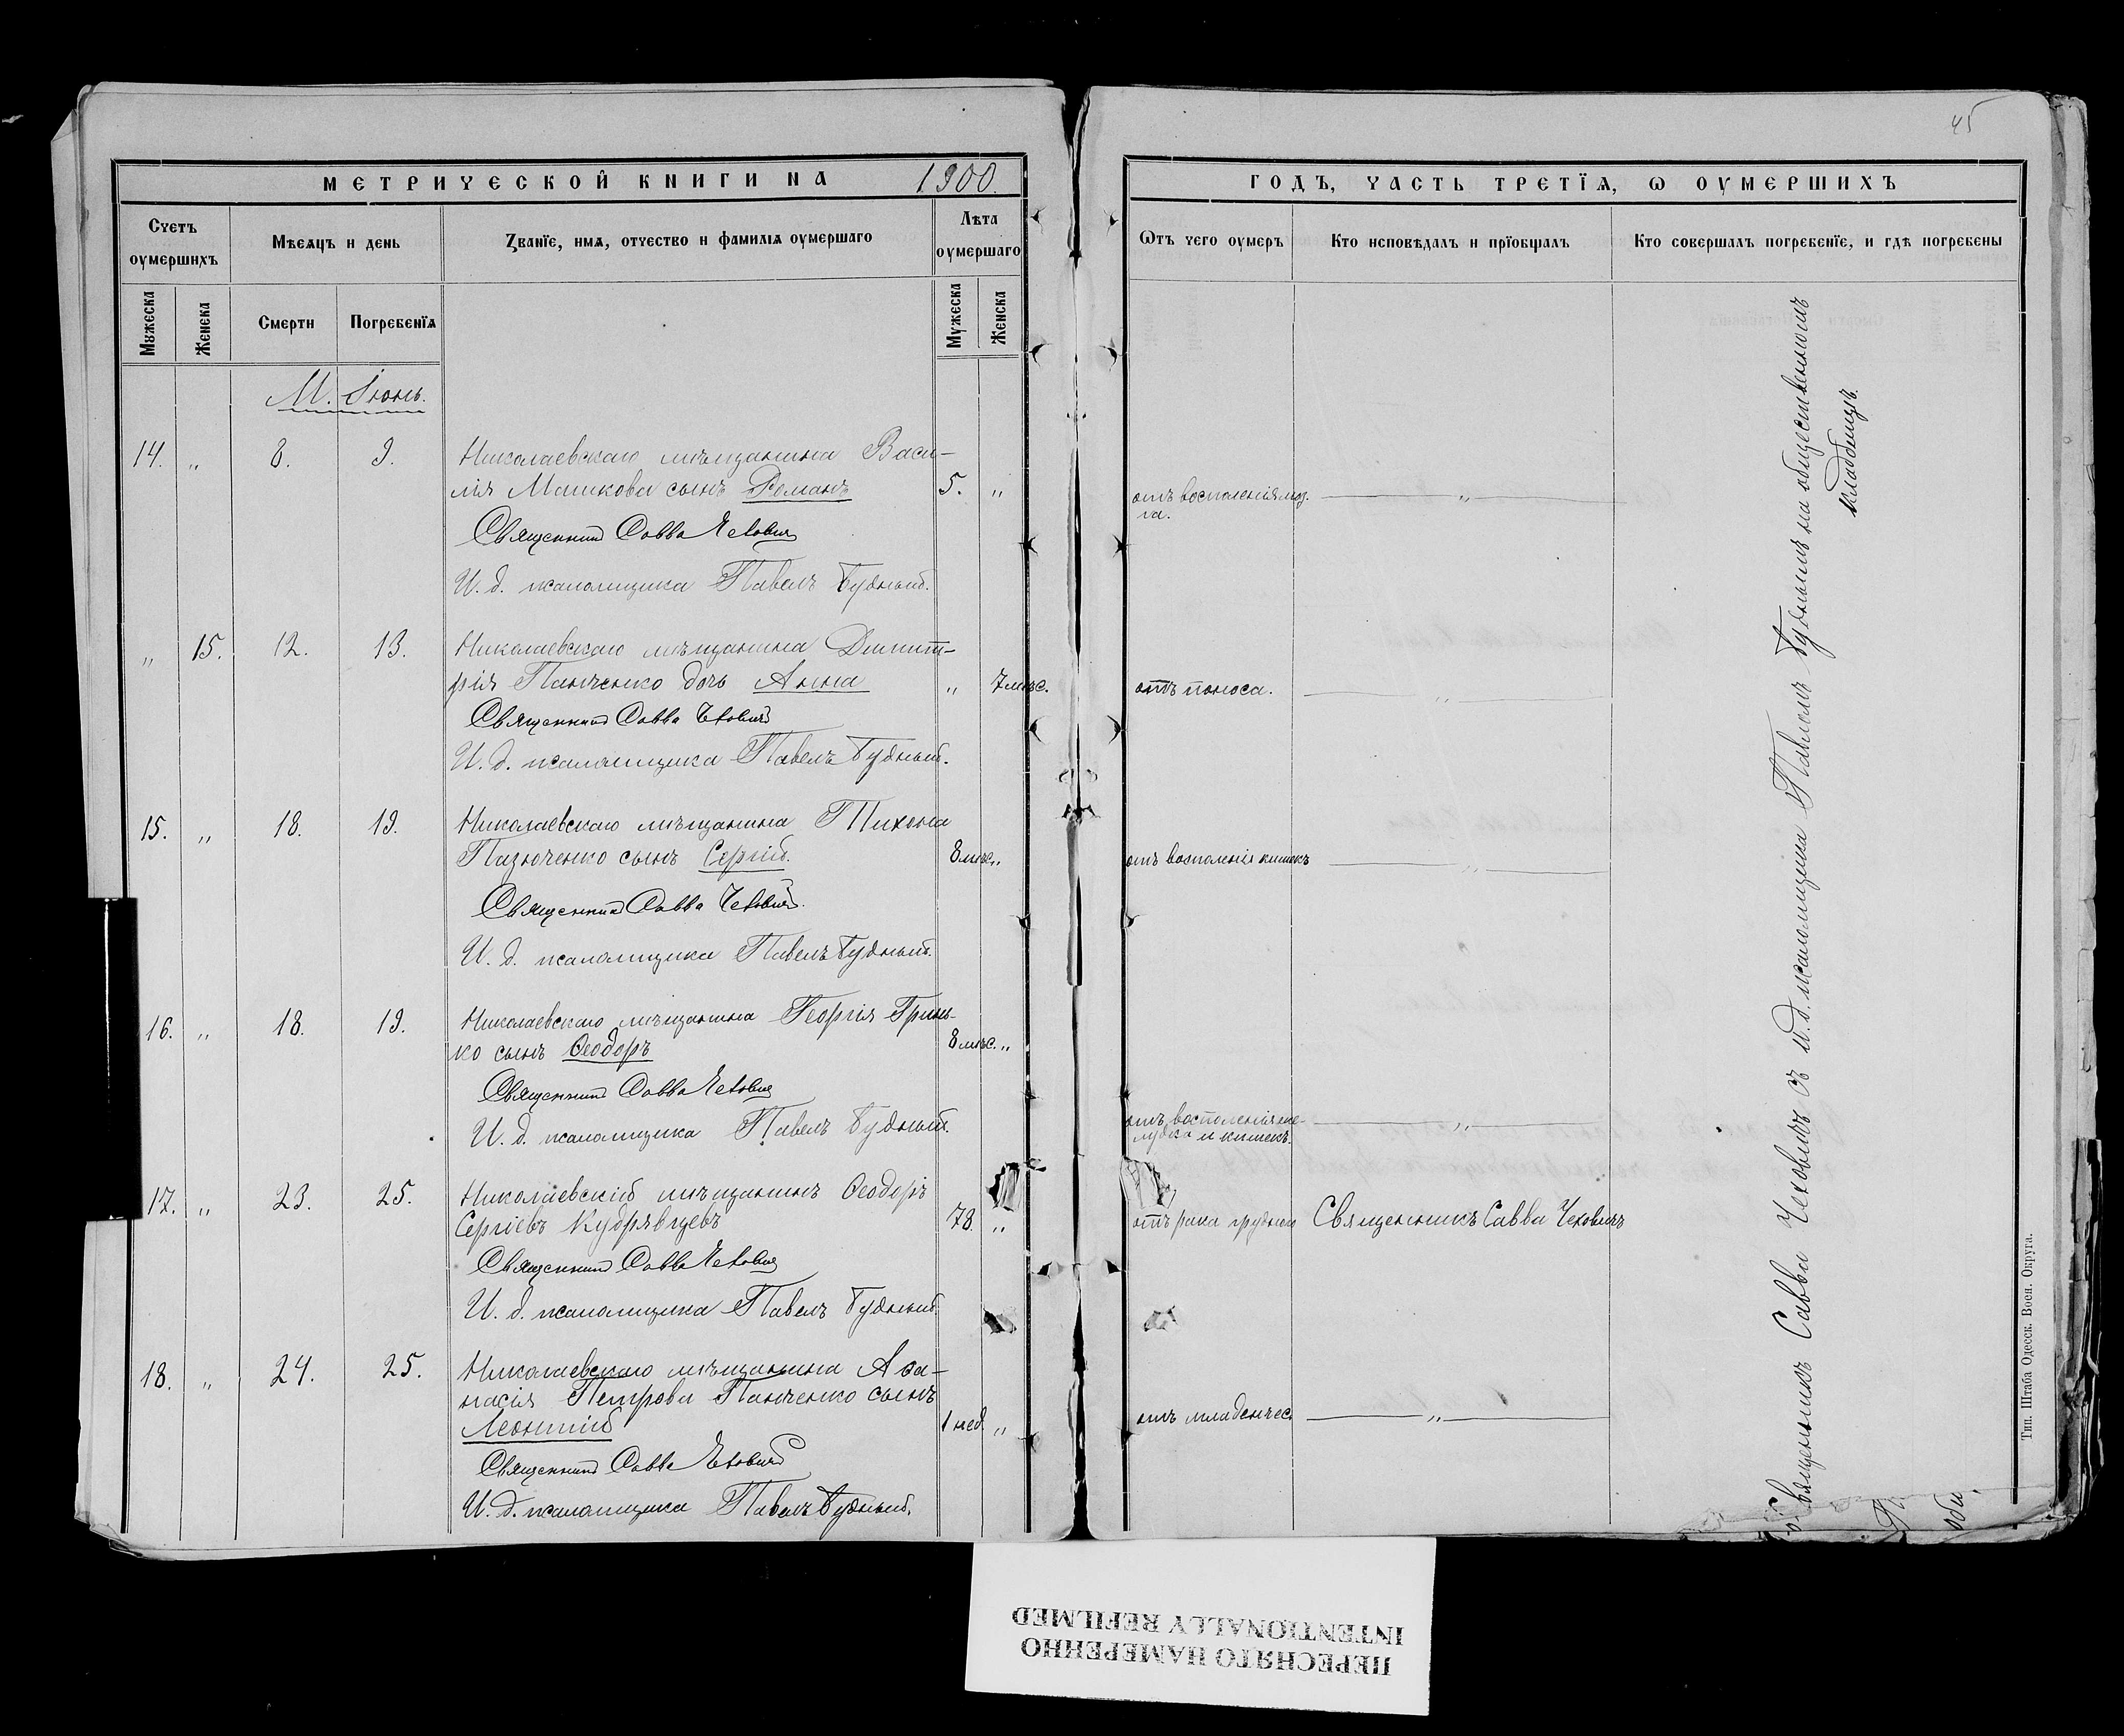 45
МЕТРИЧЕСКОЙ КНИГИ НА 1900.
Счетъ оумершихъ
Мѣсяцъ и день
Званїе, имя, отчество и фамилїя оумершаго
Лѣта оумершаго
Мужеска
Женска
Смерти
Погребенїя
Мужеска
Женска
М. Іюнь.
14. „ 8. 9. Николаевскаго мѣщанина Васи-
лія Машкова сынъ Романъ 5. „
Священникъ Савва Чеховичъ
И. д. псаломщика Павелъ Будный.
„ 15. 12. 13. Николаевскаго мѣщанина Димит-
рія Панченко дочь Анна „ 7 мѣс.
Священникъ Савва Чеховичъ
И. д. псаломщика Павелъ Будный.
15. „ 18. 19. Николаевскаго мѣщанина Тихона
Пазюченко сынъ Сергій. 8 мѣс. „
Священникъ Савва Чеховичъ.
И. д. псаломщика Павелъ Будный.
16. „ 18. 19. Николаевскаго мѣщанина Георгія Гринь-
ко сынъ Ѳеодоръ 8 мѣс. „
Священникъ Савва Чеховичъ
И. д. псаломщика Павелъ Будный.
17. „ 23. 25. Николаевскій мѣщанинъ Ѳеодоръ
Сергіевъ Кудрявцевъ 78. „
Священникъ Савва Чеховичъ
И. д. псаломщика Павелъ Будный.
18. „ 24. 25. Николаевскаго мѣщанина Аѳа-
насія Петрова Панченко сынъ
Леонтій 1 нед. „
Священникъ Савва Чеховичъ
И. д. псаломщика Павелъ Будный.
ГОДЪ, ЧАСТЬ ТРЕТЇЯ, Ѡ ОУМЕРШИХЪ
Ѿтъ чего оумеръ
Кто исповѣдалъ и прїобщалъ
Кто совершалъ погребенїе, и гдѣ погребены
отъ воспаленія моз-
га. „
отъ поноса. „
отъ воспаленія кишекъ „
отъ воспаленія же-
лудка и кишекъ. „
отъ рака грудного Священникъ Савва Чеховичъ
отъ младенчес. „
Священникъ Савва Чеховичъ съ и. д. псаломщика Павломъ Буднымъ на общественномъ
кладбищѣ.
общ.
Тип. Штаба Одесск. Воен. Округа.
ПЕРЕСНЯТО НАМЕРЕННО
INTENTIONALLY REFILMED